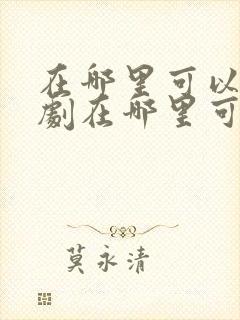 在哪里可以
劇在哪里可
莫永清